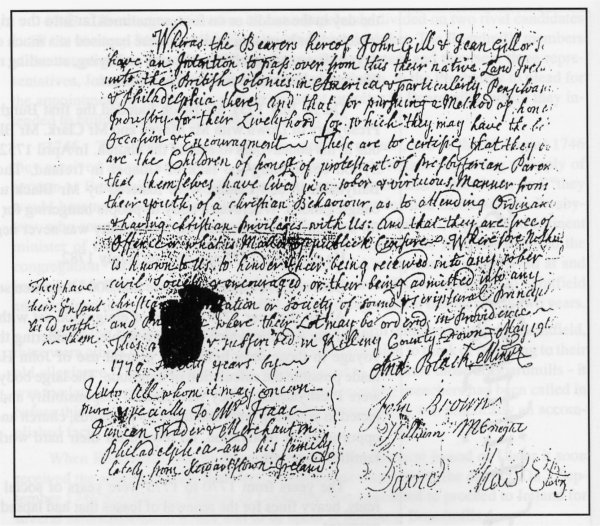 Whereas the Bearers hereof John Gill & Jean Gill or S.
have an Intention to pass over from this their native Land Irel
unto the British Colonies in America, & particularly Pensilvan
& Philadelphia there, and that for pursuing a Method of hone
Industry for their Livelyhood for which they may have the be
Occasion & Encouragment — These are to certifie, that they a
are the Children of honest protestant of Presbyterian Paren
that themselves have lived in a sober & virtuous Manner from
their youth, of a christian Behaviour, as to attending Ordinanc
& having christian Priviledges with Us: and that they are free of
Offence or what is Matter of publick Censure — Wherefore Nothin
is known to Us, to hinder their being received into any sober
civil Society & encouraged, or their being admitted into any
christia ation or Society of sound & scriptural Principl
and where their Lot may be ordered in Providence
This a & justified in Killeny County Down May 19th
1770 years by — And Black Minr
They have
their Infant
child with
them
Unto All whom it may concern
more especially To Mr Isaac
Duncan Trader & Merchant in
Philadelphia and his family
lately from Newartown Ireland
John Brown
William McKnight
David Shaw Eldrs